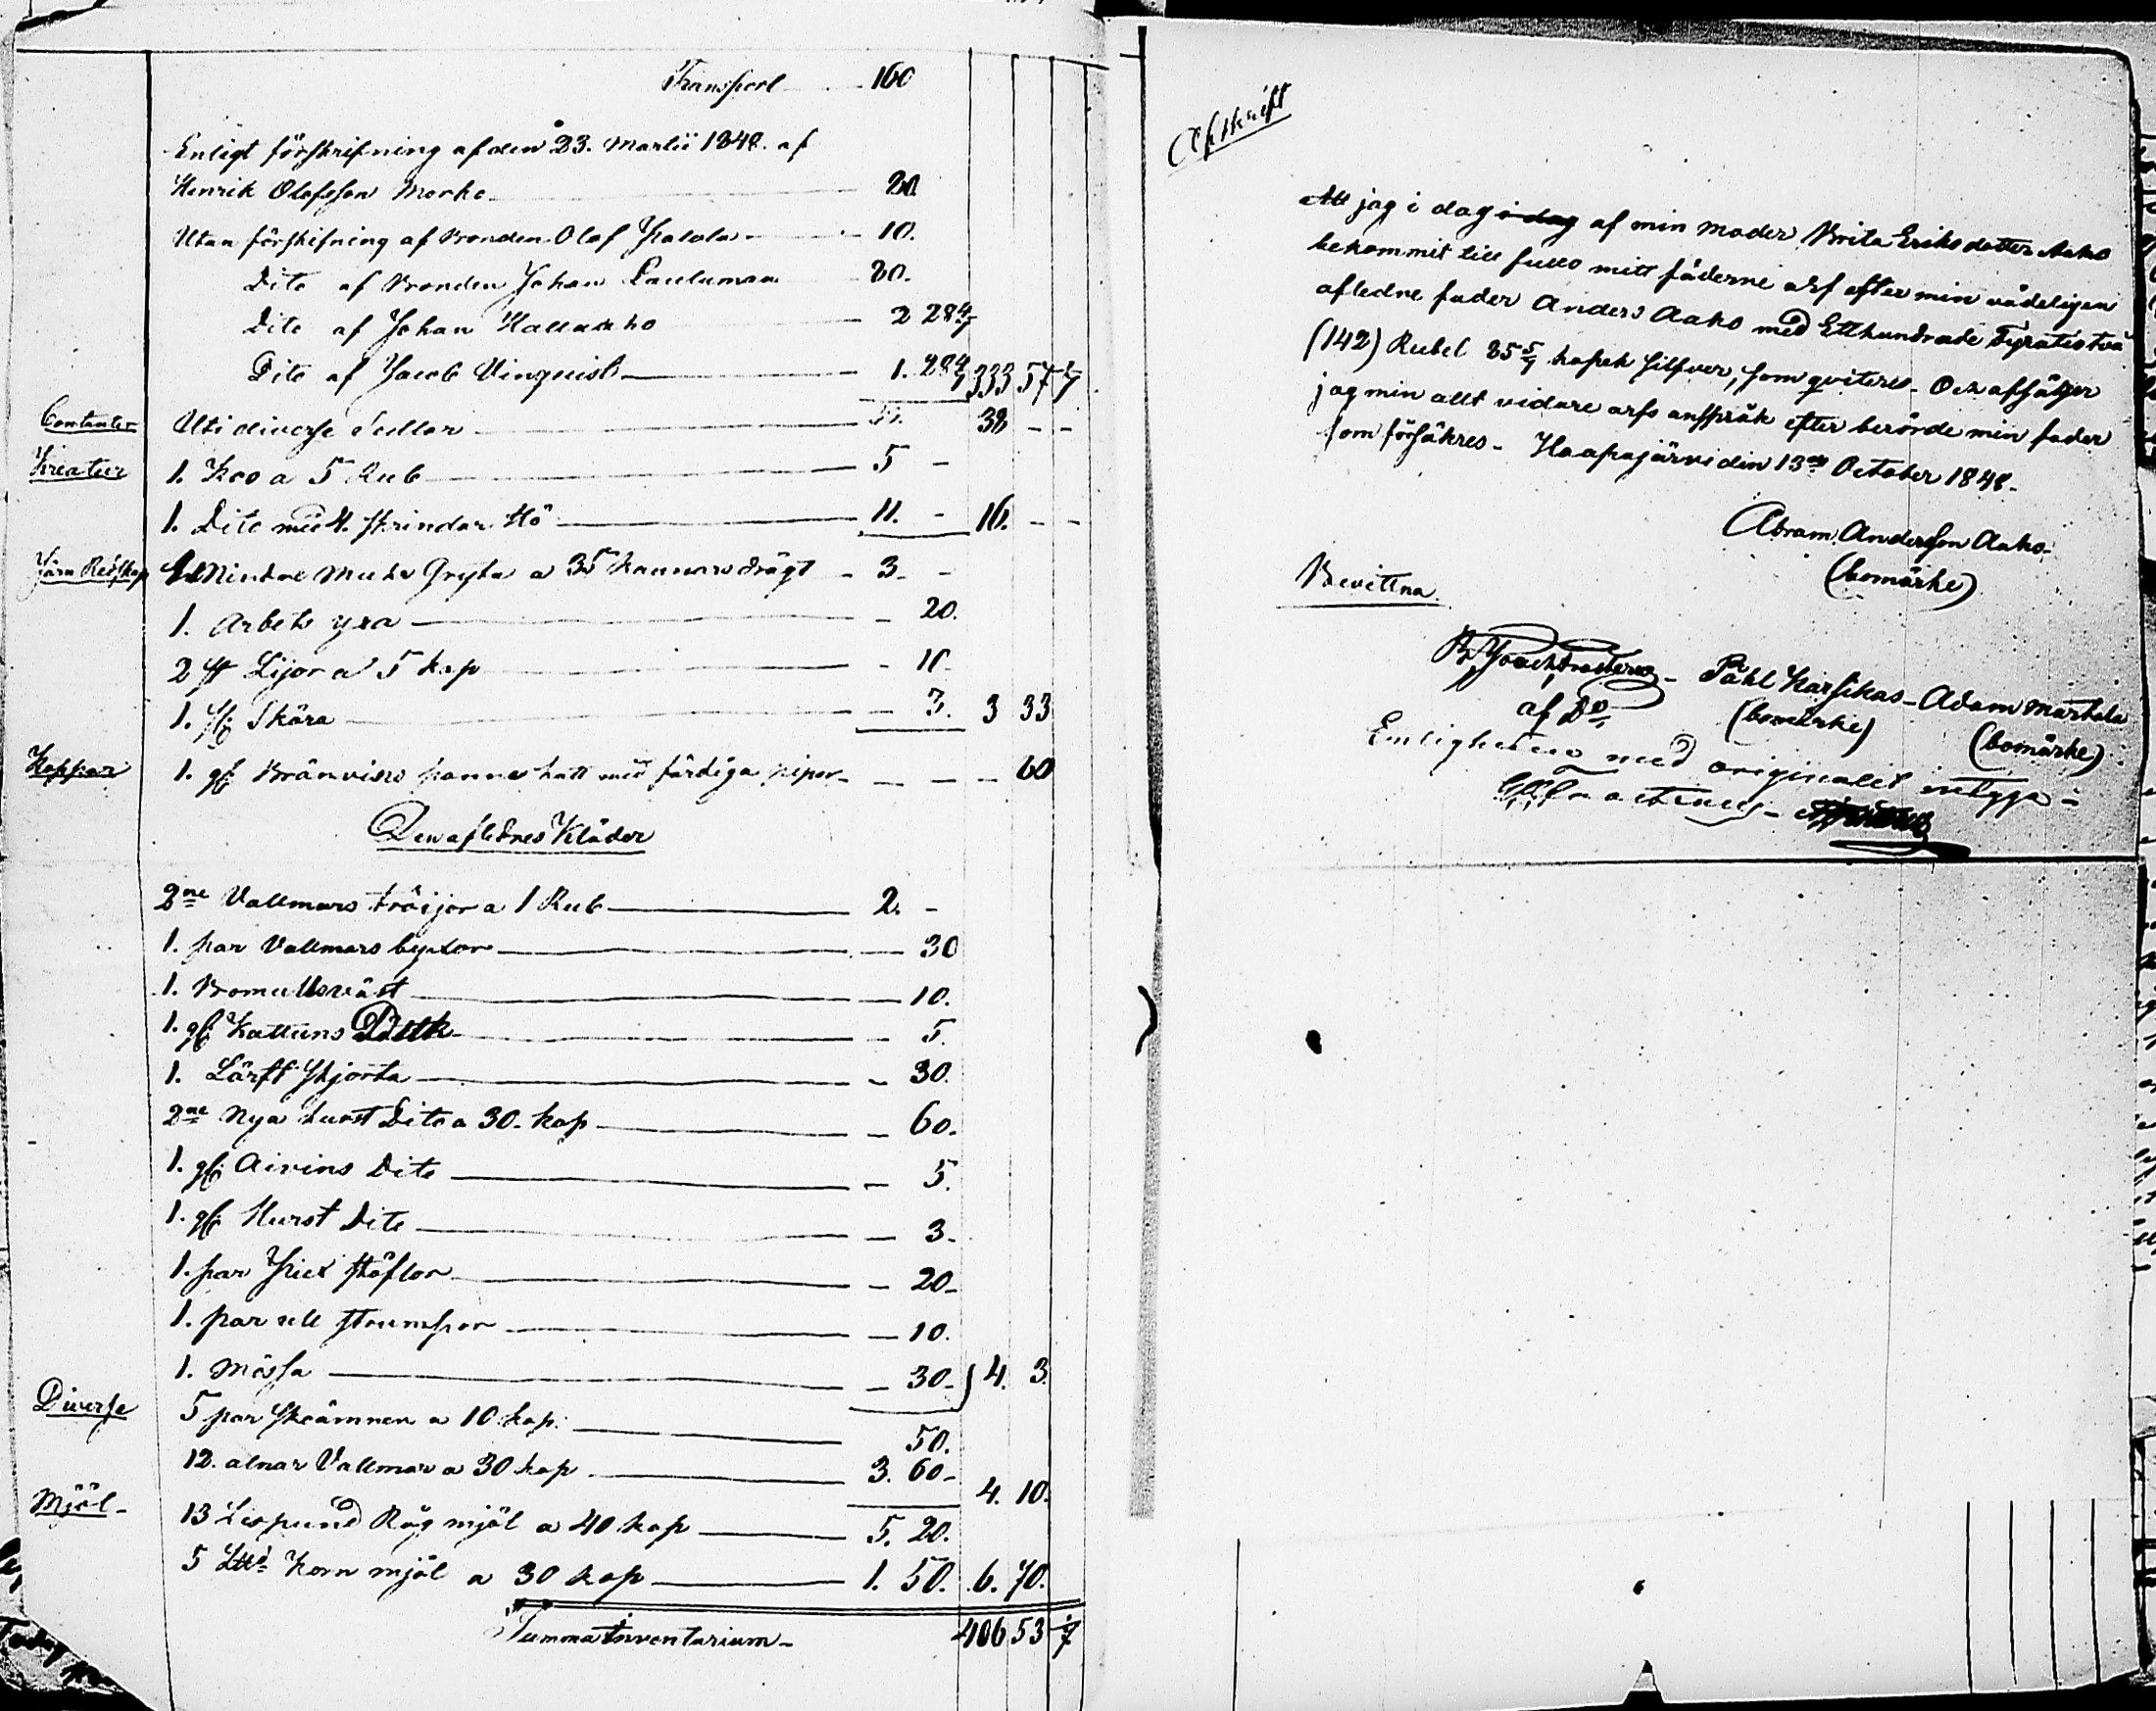 Transport 160
Enligt förskrifning af den 23. Martii 1848. af
Henrik Olofsson Morko 20.
Utan förskifning af Bonden Olof 10.
Dito af Bonden Johan Pauluman 80.
Dito af Johan 2 28 4/7
Dito af Jacob Vinquist 1. 28 4/7 333 57 1/7
Contanter Uti diverse Sedlar 38 - -
Kreatur 1. Koo a 5 Rub 5 -
1. Dito med 4. skrindar Hö 11. - 16. - -
Järn Redskap Gryta a 35 kannors drägt 3. -
1. Arbets yxa - 20.
2 st Lijor a 5 kop - 10.
1. gl: Skära - 3. 3 33
Koppar 1. gl: Bränvins panne hatt med färdiga pipor - - - 60
Den aflednes Kläder
2ne Vallmars tröijor a 1 Rub 2. -
1. par Vallmars byxor - 30
1. Bomullsväst - 10.
1. gl: Kattuns - 5.
1. Lärfts skjorta - 30.
2ne Nya hurst Dito a 30. kop - 60.
1. gl: Aivins Dito - 5.
1. gl: Hurst Dito - 3.
1. par stöflor - 20.
1. par ull strumpor - 10.
1. Mössa - 30. 4. 3.
Diverse 5 par skoämnen a 10 kop: 50.
12. alnar Vallmar a 30 kop 3. 60. 4. 10.
Mjöl- 13 Lispund Råg mjöl a 40 kop 5. 20.
5 Korn mjöl a 30 kop 1. 50. 6. 70.
Summa Inventarium 406 53 1/7
Afskrift
Att jag i dag i dag af min moder Brita Eriksdotter Aaho
bekommit till fullo mitt fäderne arf efter min
afledne fader Anders Aaho med Etthundrade Fyratiotvå
(142) Rubel 85 5/7 kopek silfver, som qviteres - Och afsäger
jag min allt vidare arfs anspråk efter berörde min fader
som försäkres - Haapajärvi den 13de October 1848.
Abram Andersson Aaho
(bomärke)
Bevittna
Påhl Karsikas - Adam Martala
af Do (bomärke) (bomärke)
Enligheten med originalet intyga -